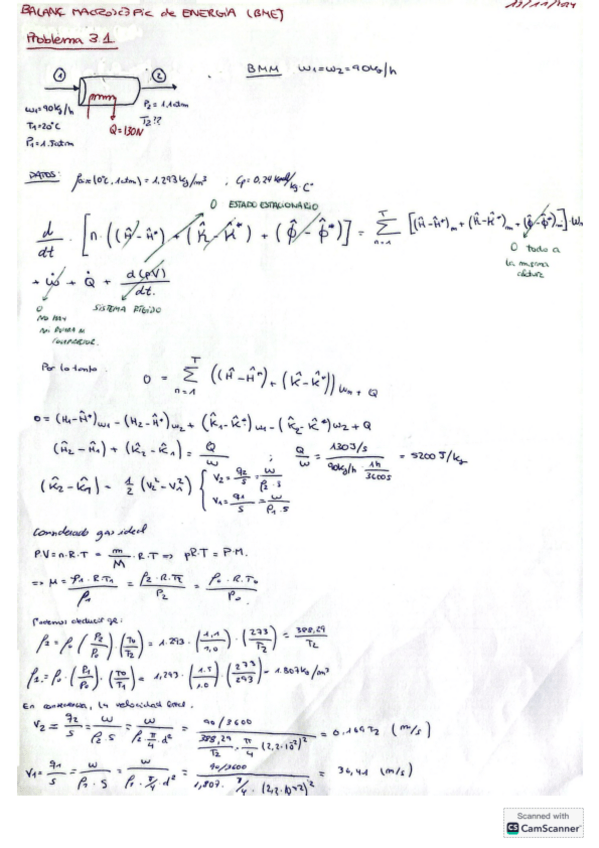 BALANÇ MACROSCÒPIC de ENERGIA (BME)
Problema 3.1
BMM w1=w2=90kg/h
① ②
w1=90kg/h
T1=20°C
P1=1.5atm
P2=1.1atm
T2??
Q=130W
DATOS: ρaire(0°C, 1atm)=1,293kg/m³ ; Cp=0,24 kcal/kg·C°
0 ESTADO ESTACIONARIO
d/dt · [n·((Ĥ-Ĥ*)+(K̂-K̂*)+(φ̂-φ̂*)] = Σ(n=1, T) [(Ĥ-Ĥ*)m+(K̂-K̂*)m+(φ̂-φ̂*)m]·wn
0 todo a
la misma
altura
+ ẇ + Q̇ + d(pV)/dt.
0
no hay
SISTEMA RÍGIDO
Por lo tanto:
0 = Σ(n=1, T) ((Ĥ-Ĥ*)+(K̂-K̂*)) wn + Q
0=(H1-Ĥ*)w1-(H2-Ĥ*)w2+(K̂1-K̂*)w1-(K̂2-K̂*)w2+Q
(Ĥ2-Ĥ1)+(K̂2-K̂1)= Q/w ; Q/w = 130J/s / (90kg/h · 1h/3600s) = 5200J/kg
(K̂2-K̂1)= 1/2 (v2²-v1²) { V2=q2/s=w/(ρ2·s)
V1=q1/s=w/(ρ1·s)
Considerado gas ideal
P·V=n·R·T = m/M·R·T => ρR·T=P·M.
=> M = ρ1·R·T1/P1 = ρ2·R·T2/P2 = ρ0·R·T0/P0.
Podemos deducir qe:
ρ2=ρ0(P2/P0)·(T0/T2)=1.293·(1,1/1,0)·(273/T2)=388,29/T2
ρ1=ρ0·(P1/P0)·(T0/T1)=1,293·(1.5/1.0)·(273/293)=1.807kg/m³
En consecuencia, la velocidad será.
V2=q2/s=w/(ρ2·s)=w/(ρ2·π/4·d²)= 90/3600 / (388,29/T2·π/4·(2,2·10²)²) = 0.169T2 (m/s)
V1=q1/s=w/(ρ1·s)=w/(ρ1·π/4·d²)= 90/3600 / (1,807·π/4·(2,2·10^-2)²) = 36,41 (m/s)
Scanned with
CS CamScanner